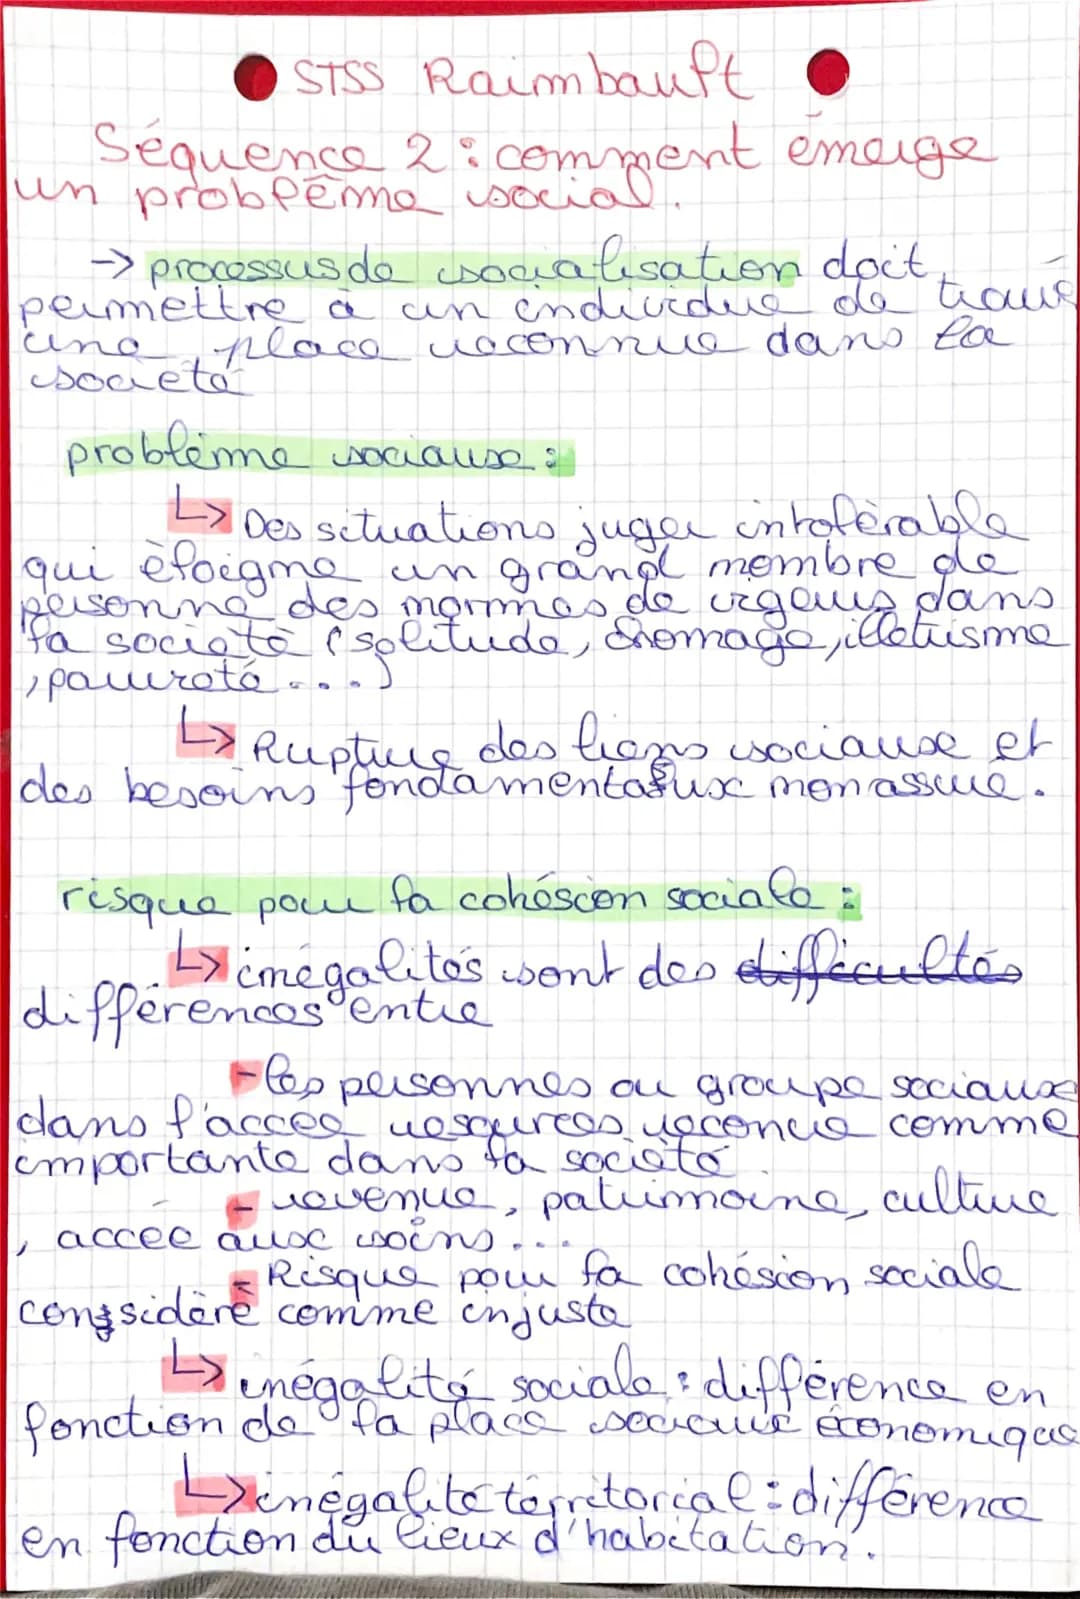 STSS Raimbault
Séquence 2 : comment émerge
un problème social.
-> processus de socialisation doit
permettre à un individue de trouve
une place reconnue dans la
société
problème sociause :
↳ Des situations juger intolérable
qui éloigne un grand nombre de
personne des normes de vigeurs dans
la société (solitude, chomage, illetrisme
, pauvreté ...)
↳ Rupture des liens sociause et
des besoins fondamentalux non assure.
risque pour la cohéscion sociale :
↳ inégalités sont des difficultés
différences entre
- les personnes ou groupe sociause
dans l'accee resources reconue comme
importante dans la société
- revenue, patrimoine, culture
, accee ause soins ...
- Risque pour la cohésion sociale
considéré comme injuste
↳ inégalité sociale : différence en
fonction de la place économique
↳ inégalité térritorial : différence
en fonction du lieux d'habitation.